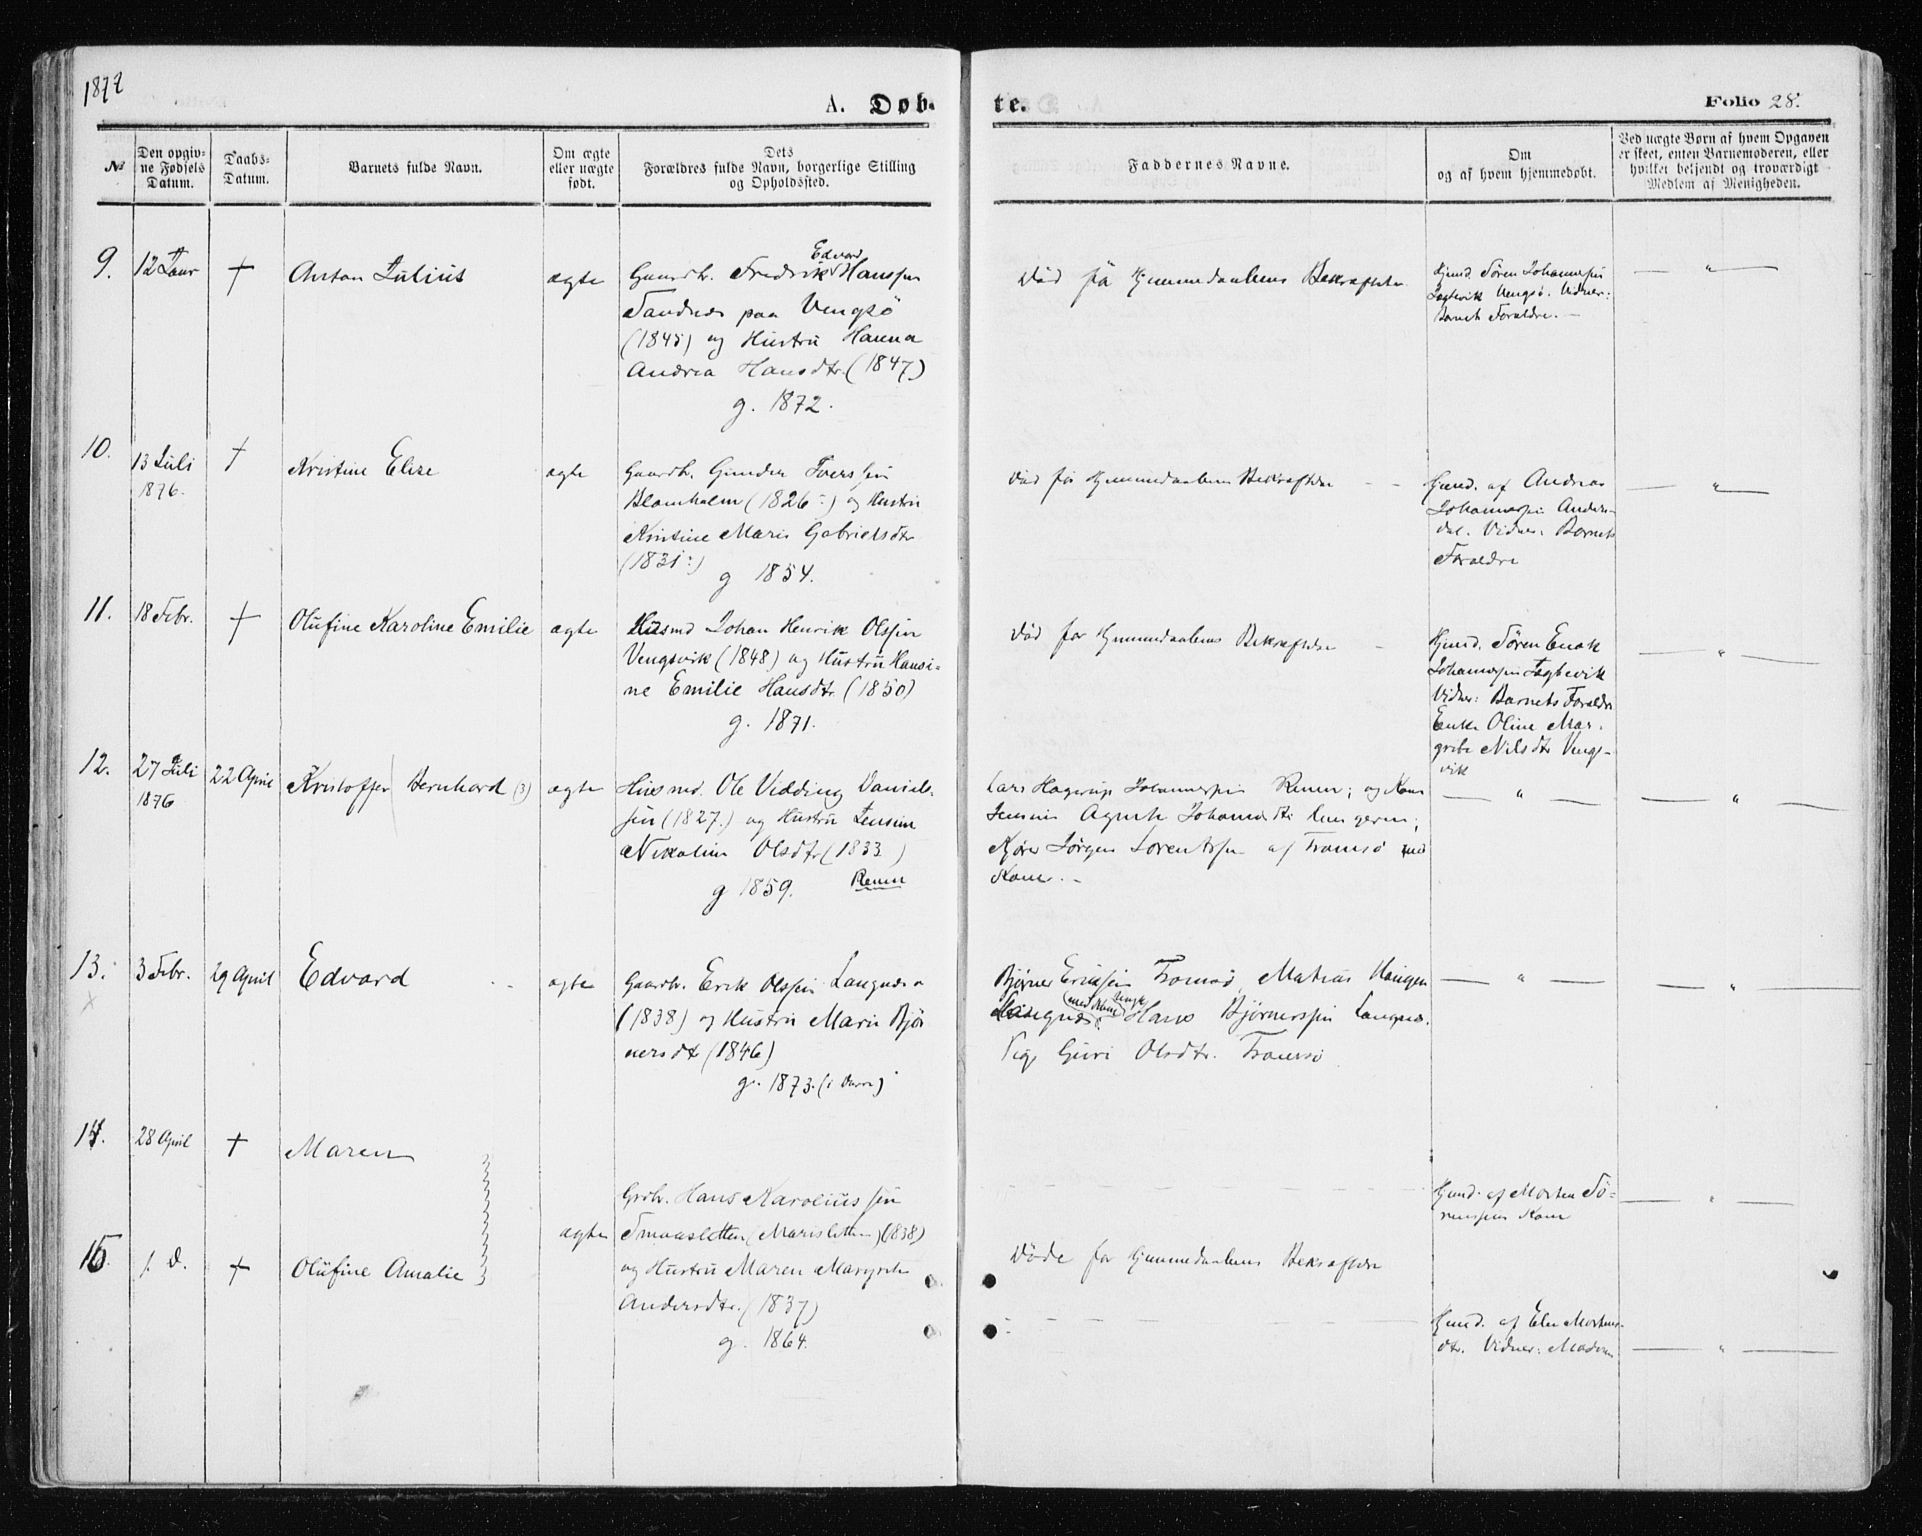 1877
A. Døb-
te.
Folio 28.
№
Den opgiv-
ne Fødsels
Datum.
Daabs-
Datum.
Barnets fulde Navn.
Om ægte
eller uægte
født.
Dets
Forældres fulde Navn, borgerlige Stilling
og Opholdssted.
Faddernes Navne.
Om
og af hvem hjemmedøbt.
Ved uægte Børn af hvem Opgaven
er skeet, enten Barnemoderen, eller
hvilket betjendt og troværdigt
Medlem af Menigheden.
9.
12 Janr
†
Anton Julius
ægte
Edvard
Gaardbr. Fredrik Hanssen
Sandnes paa Vengsö
(1845) og Hustru Hanna
Andrea Hansdtr. (1847)
g. 1872.
Död för Hjemmedaabens Bekræftelse
Hjemd. Sören Johannessen
Vengsö. Vidner:
Barnets Forældre. —
— " —
10.
13 Juli
1876.
†
Kristine Elise
ægte
Gaardbr. Gunder Iverssen
Blomholm (1826 :) og Hustru
Kristine Marie Gabrielsdtr
(1831 :)
g 1854.
Död för Hjemmedaabens Bekræftelse
Hjemd. af Andreas
Johannessen Anders-
dal. Vidner: Barnets
Forældre
— " —
11.
18 Febr.
†
Olufine Karoline Emilie
ægte
Husmd Johan Henrik Olssen
Vengsvik (1848) og Hustru Hansi-
ne Emilie Hansdtr. (1850)
g. 1871.
Död för Hjemmedaabens Bekræftelse
Hjemd. Sören Enok
Johannessen
Vidner: Barnets Forældre
Enke Oline Mar-
grete Nilsdtr Vengs-
vik
— " —
12.
27 Juli
1876
22 April
Kristoffer Bernhard (3)
ægte
Husmd. Ole Vidding Daniels-
sen (1827.) og Hustru Jensine
Nikoline Olsdtr (1833)
g 1859. Renen
Lars Hagerup Johannessen Renen; og Kone
Jensine Agnete Johansdtr
Jörgen Lorentzsen af Tromsö med
Kone. —
— " —
— " —
13.
x
3 Febr.
29 April
Edvard
ægte
Gaardbr. Erik Olssen Langnes
(1838) og Hustru Marie Björ-
nersdtr (1846)
g. 1873. (i )
Bjørner Erikssen Tromsö, Matias
med Kone
Langnes. Hans Bjørnerssen Langnes.
Pige Guri Olsdtr. Tromsö
— " —
— " —
14.
28 April
†
Maren
Grdbr. Hans Karoliussen
Smaasletten (Marisletten) (1838)
og Hustru Maren Margrete
Andersdtr. (1837)
g. 1864.
ægte
Hjemd. af Morten Sö-
renssens Kone
— " —
15.
s. D.
†
Olufine Amalie
Døde for Hjemmedaabens Bekræftelse
Hjemd. af Elen Mortens-
dtr. Vidner: Moderen
— " —